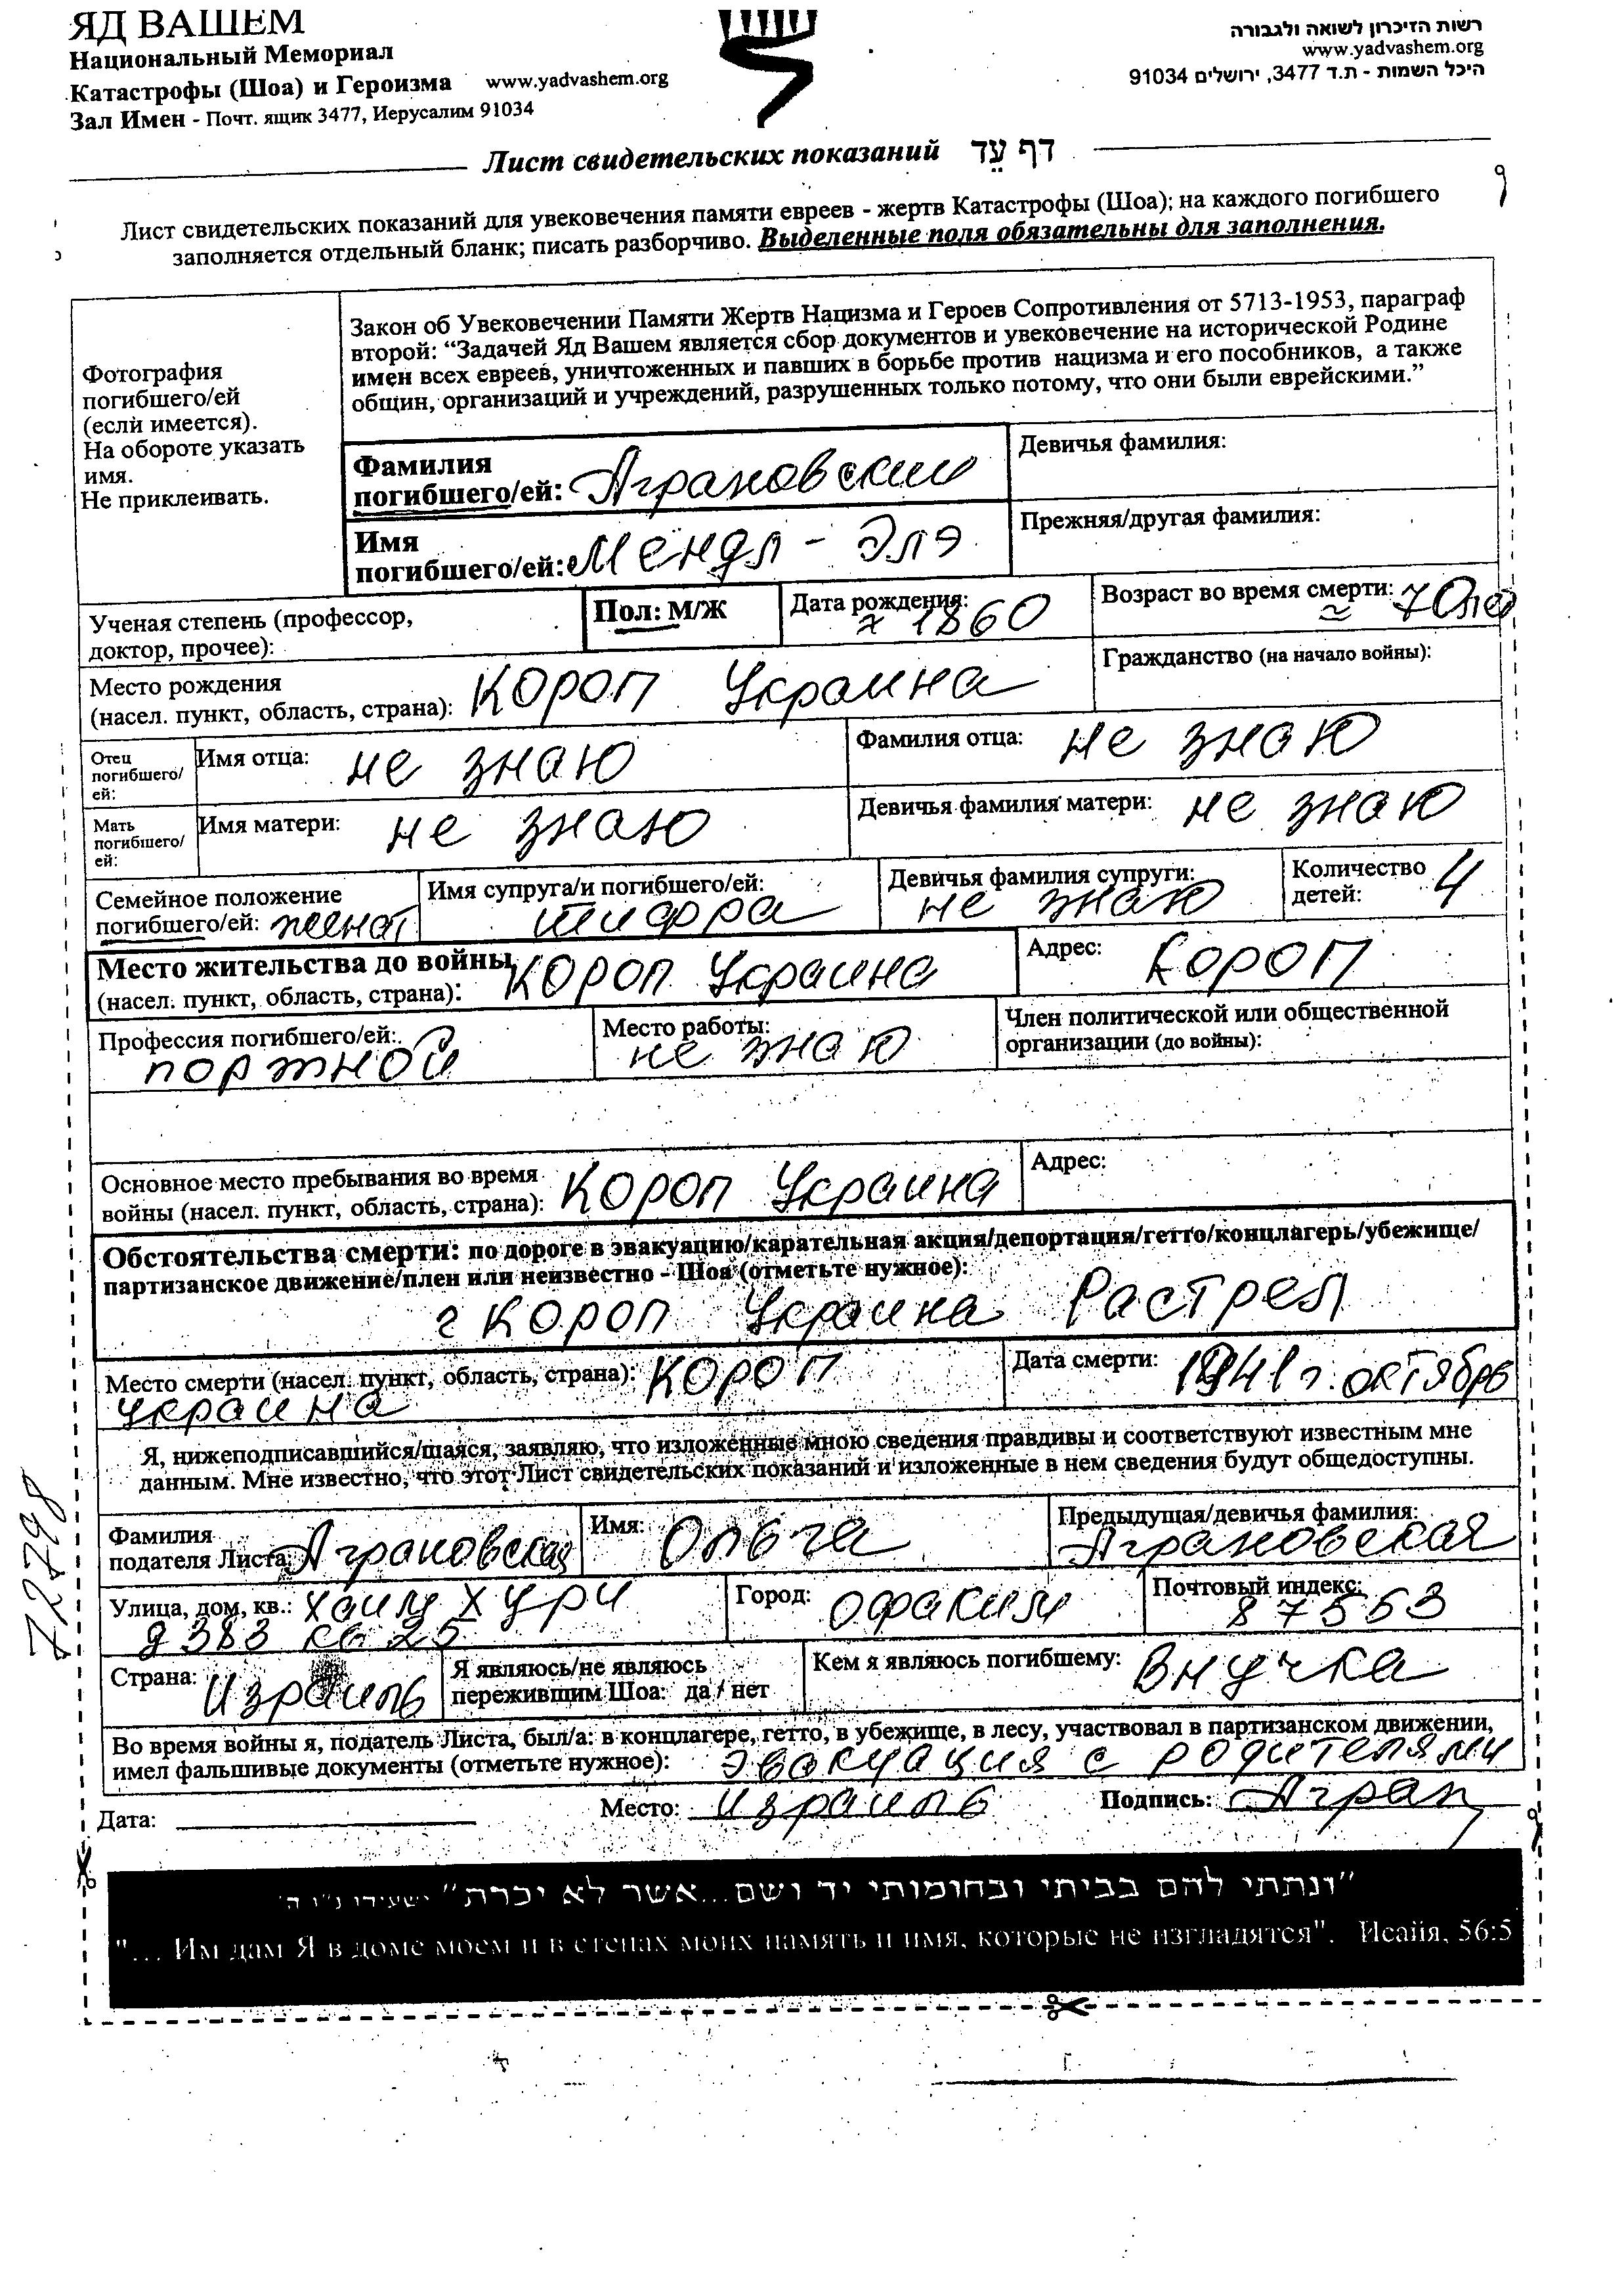 ЯД ВАШЕМ
Национальный Мемориал
Катастрофы (Шоа) и Героизма www.yadvashem.org
Зал Имен - Почт. ящик 3477, Иерусалим 91034
רשות הזיכרון לשואה ולגבורה
www.yadvashem.org
היכל השמות - ת.ד 3477, ירושלים 91034
Лист свидетельских показаний דף עֵד
Лист свидетельских показаний для увековечения памяти евреев - жертв Катастрофы (Шоа); на каждого погибшего
заполняется отдельный бланк; писать разборчиво. Выделенные поля обязательны для заполнения.
Фотография
погибшего/ей
(если имеется).
На обороте указать
имя.
Не приклеивать.
Закон об Увековечении Памяти Жертв Нацизма и Героев Сопротивления от 5713-1953, параграф
второй: “Задачей Яд Вашем является сбор документов и увековечение на исторической Родине
имен всех евреев, уничтоженных и павших в борьбе против нацизма и его пособников, а также
общин, организаций и учреждений, разрушенных только потому, что они были еврейскими.”
Фамилия
погибшего/ей: Аграновский
Девичья фамилия:
Имя
погибшего/ей: Мендл - Элэ
Прежняя/другая фамилия:
Ученая степень (профессор,
доктор, прочее):
Пол: М/Ж
Дата рождения:
≈ 1860
Возраст во время смерти:
≈ 70лет
Место рождения
(насел. пункт, область, страна): Короп Украина
Гражданство (на начало войны):
Отец
погибшего/
ей:
Имя отца: не знаю
Фамилия отца: не знаю
Мать
погибшего/
ей:
Имя матери: не знаю
Девичья фамилия матери: не знаю
Семейное положение
погибшего/ей: женат
Имя супруга/и погибшего/ей:
Шифра
Девичья фамилия супруги:
не знаю
Количество
детей: 4
Место жительства до войны
(насел. пункт, область, страна): Короп Украина
Адрес: Короп
Профессия погибшего/ей:
портной
Место работы:
не знаю
Член политической или общественной
организации (до войны):
Основное место пребывания во время
войны (насел. пункт, область, страна): Короп Украина
Адрес:
Обстоятельства смерти: по дороге в эвакуацию/карательная акция/депортация/гетто/концлагерь/убежище/
партизанское движение/плен или неизвестно - Шоа (отметьте нужное):
г Короп Украина Растрел
Место смерти (насел. пункт, область, страна): Короп
Украина
Дата смерти: 1941 г. октябрь
Я, нижеподписавшийся/шаяся, заявляю, что изложенные мною сведения правдивы и соответствуют известным мне
данным. Мне известно, что этот Лист свидетельских показаний и изложенные в нем сведения будут общедоступны.
Фамилия
подателя Листа: Аграновская
Имя: Ольга
Предыдущая/девичья фамилия:
Аграновская
Улица, дом, кв.: Хаим Хури
д 383 кв 25
Город: Офаким
Почтовый индекс:
87553
Страна: Израиль
Я являюсь/не являюсь
пережившим Шоа: да / нет
Кем я являюсь погибшему: Внучка
Во время войны я, податель Листа, был/а: в концлагере, гетто, в убежище, в лесу, участвовал в партизанском движении,
имел фальшивые документы (отметьте нужное): эвакуация с родителями
Дата:
Место: Израиль
Подпись: Агран
"ונתתי להם בביתי ובחומותי יד ושם...אשר לא יכרת" ישעיהו נ"ו ה'
"... Им дам Я в доме моем и в стенах моих память и имя, которые не изгладятся". Исайя, 56:5
722798